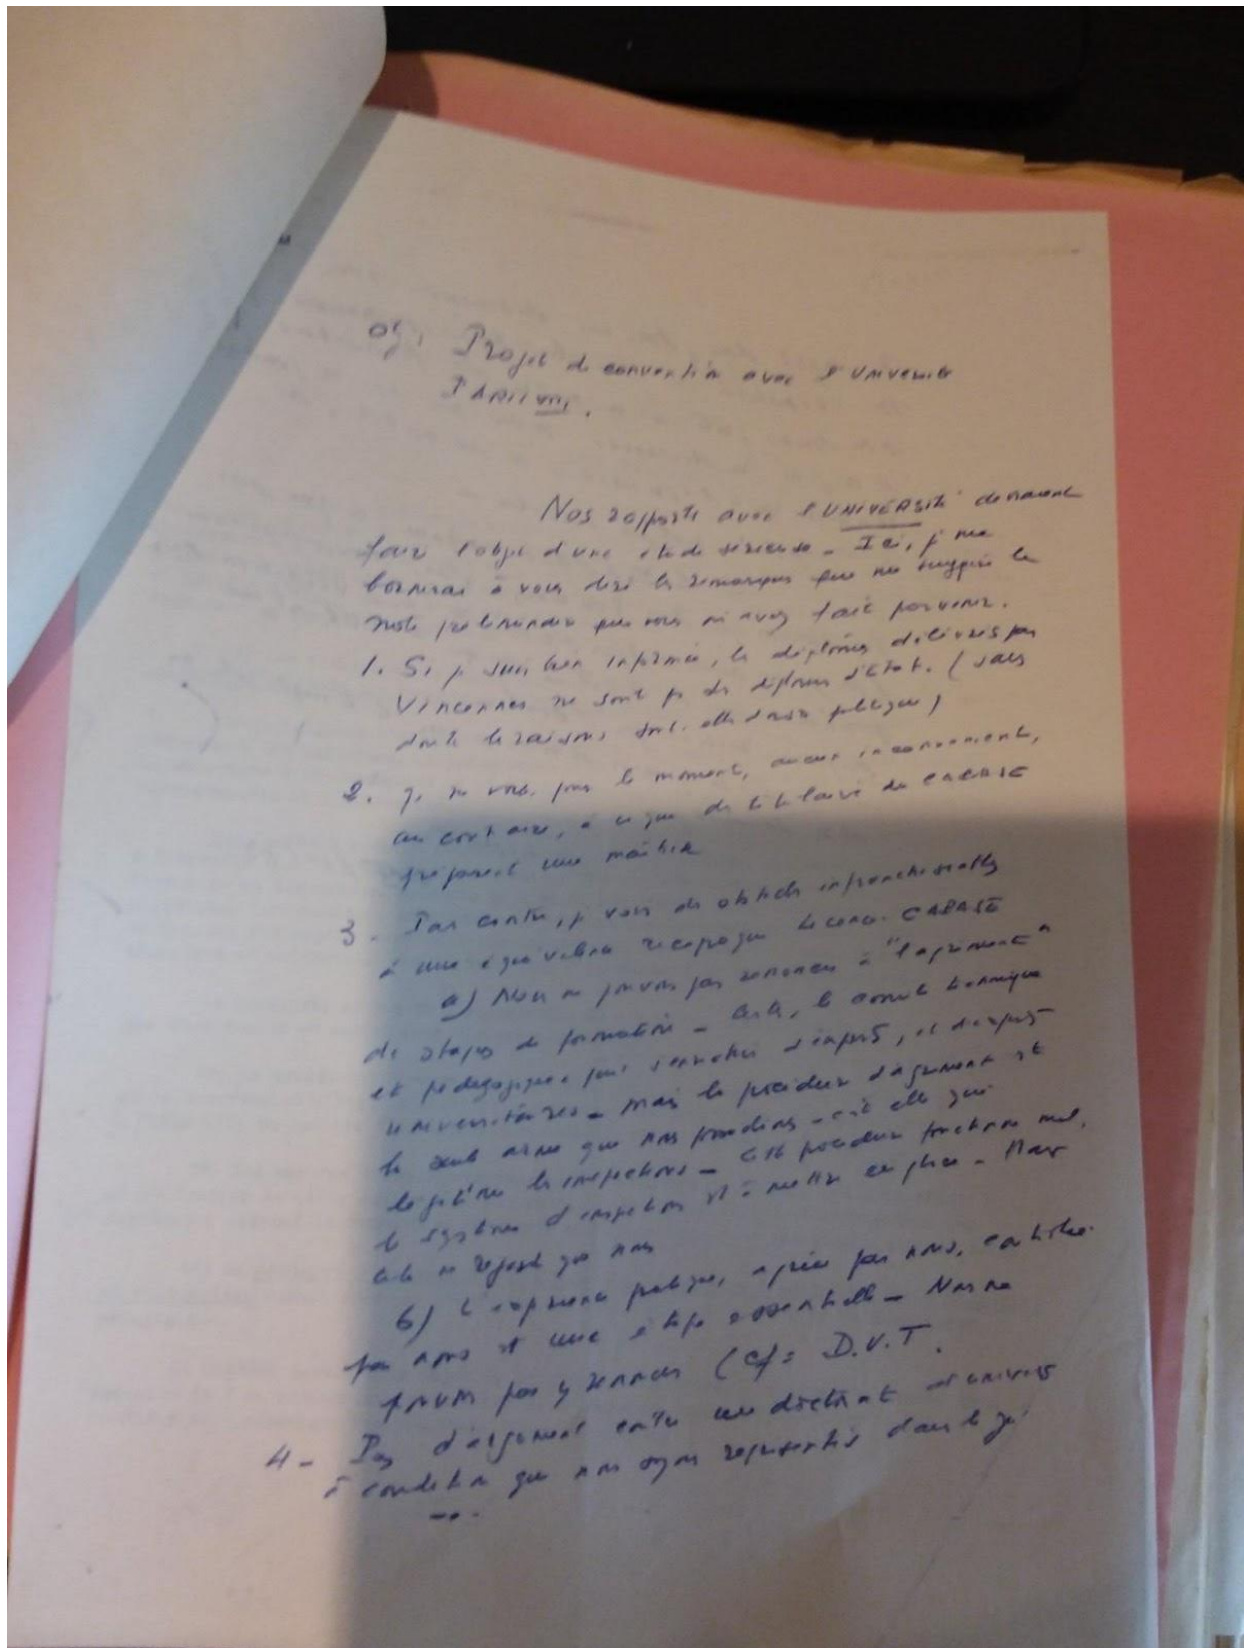 Obj: Projet de convention avec l'Université
PARIS VIII.
Nos rapports avec l'UNIVERSITÉ devraient
faire l'objet d'une étude sérieuse - Ici, je me
bornerai à vous dire les remarques que me suggère la
note préliminaire que vous m'avez fait parvenir.
1. Si je suis bien informé, les diplômes délivrés par
Vincennes ne sont pas des diplômes d'Etat. (sans
doute les raisons sont-elles d'ordre politique)
2. Je ne vois, pour le moment, aucun inconvénient,
au contraire, à ce que des titulaires du CAPASE
préparent une maîtrise
3 - Par contre, je vois des obstacles infranchissables
à une équivalence réciproque licence-CAPASE
a) Nous ne pouvons pas renoncer à "l'agrément"
de stages de formation - Certes, le conseil technique
et pédagogique peut s'enrichir d'experts, et d'experts
universitaires - mais la procédure d'agrément est
la seule arme que nous possédions - c'est elle qui
légitime les inspections - Cette procédure fonctionne mal,
le système d'inspection est à mettre en place - Mais
cela ne regarde que nous
b) L'expérience pratique, agréée par nous, contrôlée
par nous est une étape essentielle - Nous ne
pouvons pas y renoncer (cf = D.V.T.
4 - Pas d'argument contre un doctorat d'université
à condition que nous soyons représentés dans le jury